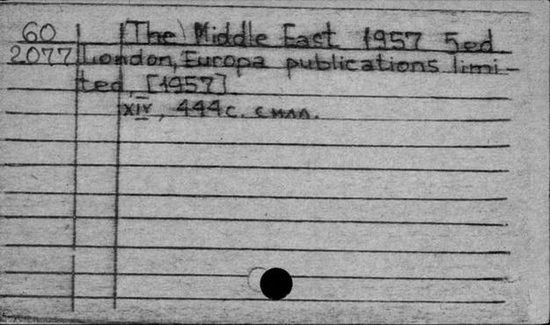 60 (The) Middle East 1957 5ed
2077 London, Europa publications limi-
ted, [1957]
XIV, 444с. с илл.